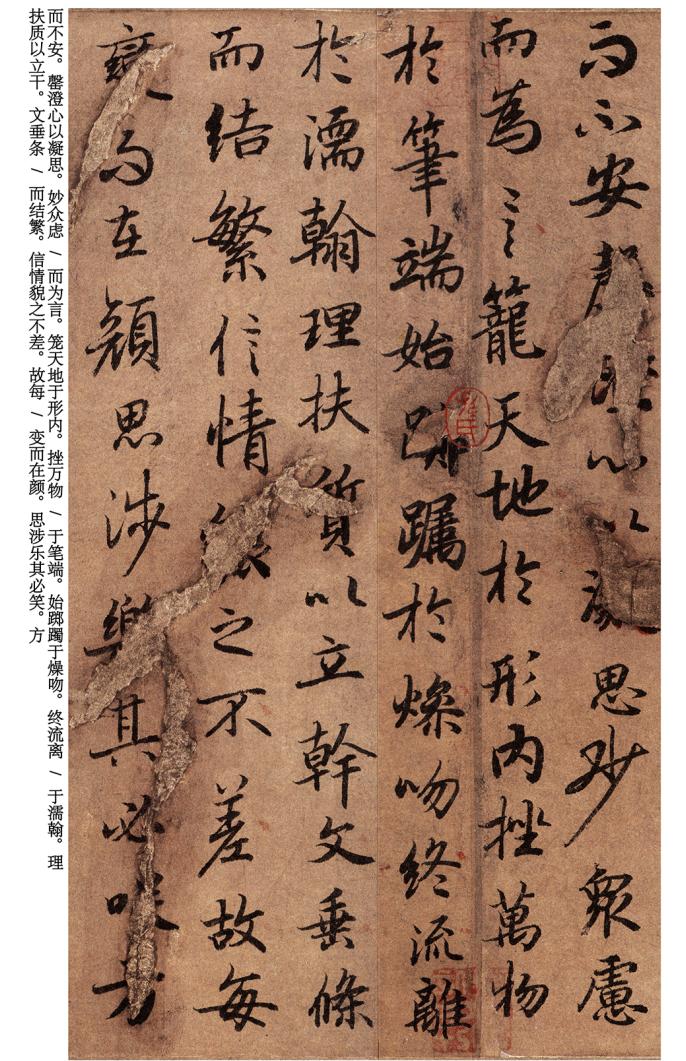 而不安罄澄心以凝思妙衆慮
而為言籠天地於形内挫萬物
於筆端始躑躅於燥吻終流離
於濡翰理扶質以立幹文垂條
而結繁信情貌之不差故每
變而在顔思涉樂其必咲方
而不安。罄澄心以凝思。妙众虑 / 而为言。笼天地于形内。挫万物 / 于笔端。始踯躅于燥吻。终流离 / 于濡翰。理
扶质以立干。文垂条 / 而结繁。信情貌之不差。故每 / 变而在颜。思涉乐其必笑。方